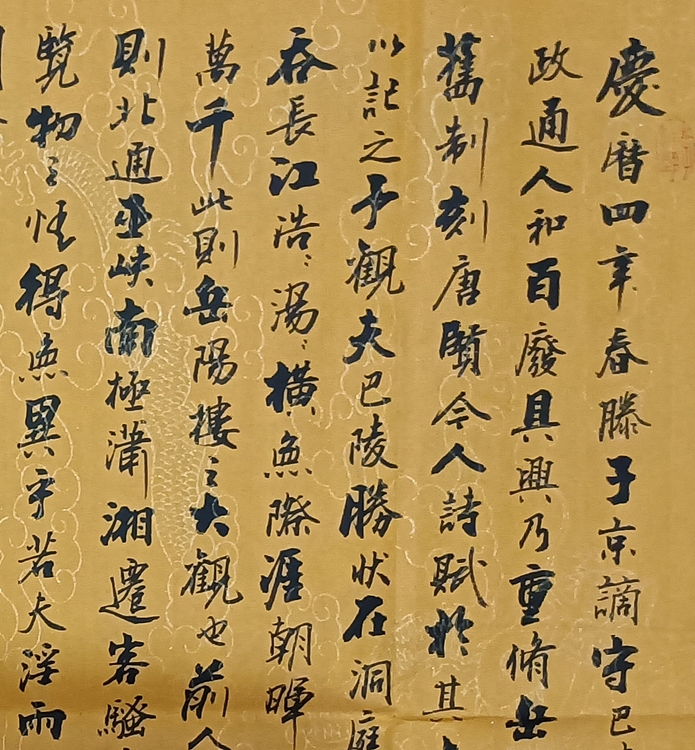 慶曆四年春滕子京謫守巴
政通人和百廢具興乃重脩岳
舊制刻唐賢今人詩賦於其
以記之予觀夫巴陵勝狀在洞庭
吞長江浩〻湯〻橫無際涯朝暉
萬千此則岳陽樓之大觀也前人
則北通巫峽南極瀟湘遷客騷
覽物之情得無異乎若夫淫雨